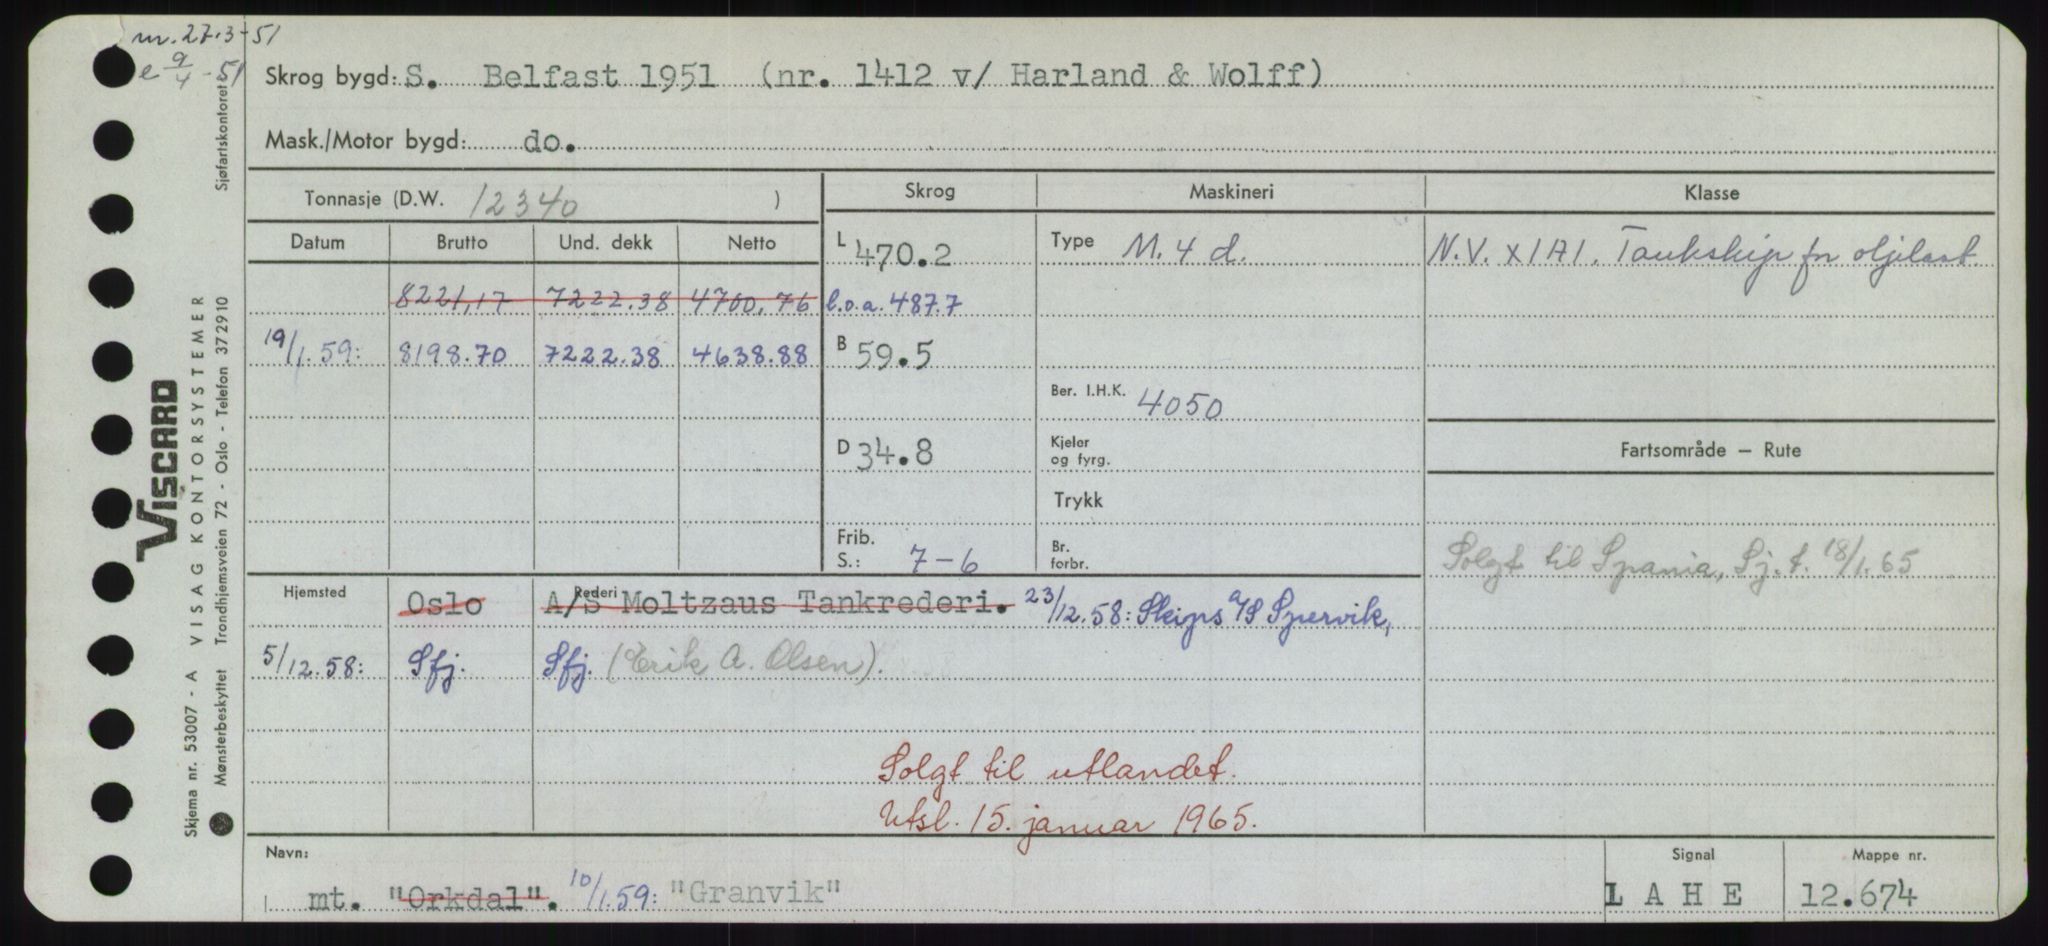 nr. 27.3-51
e 9/4 - 51
Sjøfartskontoret
Skrog bygd: S. Belfast 1951 (nr. 1412 v/ Harland & Wolff)
Mask./Motor bygd: do.
Tonnasje (D.W. 12340 )
Skrog Maskineri Klasse
Datum Brutto Und. dekk Netto
L 470.2 Type M. 4 d. N.V. x 1A1. Tankskip for oljelast.
8221,17 7222.38 4700,76 l.o.a. 487.7
19/1.59: 8198.70 7222.38 4638.88 B 59.5
Ber. I.H.K. 4050
D 34.8 Kjeler og fyrg. Fartsområde — Rute
Trykk
Frib. S.: 7-6 Br. forbr. Solgt til Spania, Sj.t. 18/1.65
Hjemsted Oslo Rederi A/S Moltzaus Tankrederi. 23/12.58: Skips a/S Spervik,
5/12.58: Sfj. Sfj. (Erik A. Olsen).
Solgt til utlandet.
Utsl. 15. januar 1965.
Navn: Signal Mappe nr.
mt. "Orkdal". 10/1.59: "Granvik" LAHE 12.674
VISCARD
Skjema nr. 53007 - A VISAG KONTORSYSTEMER
Mønsterbeskyttet Trondhjemsveien 72 - Oslo - Telefon 372910